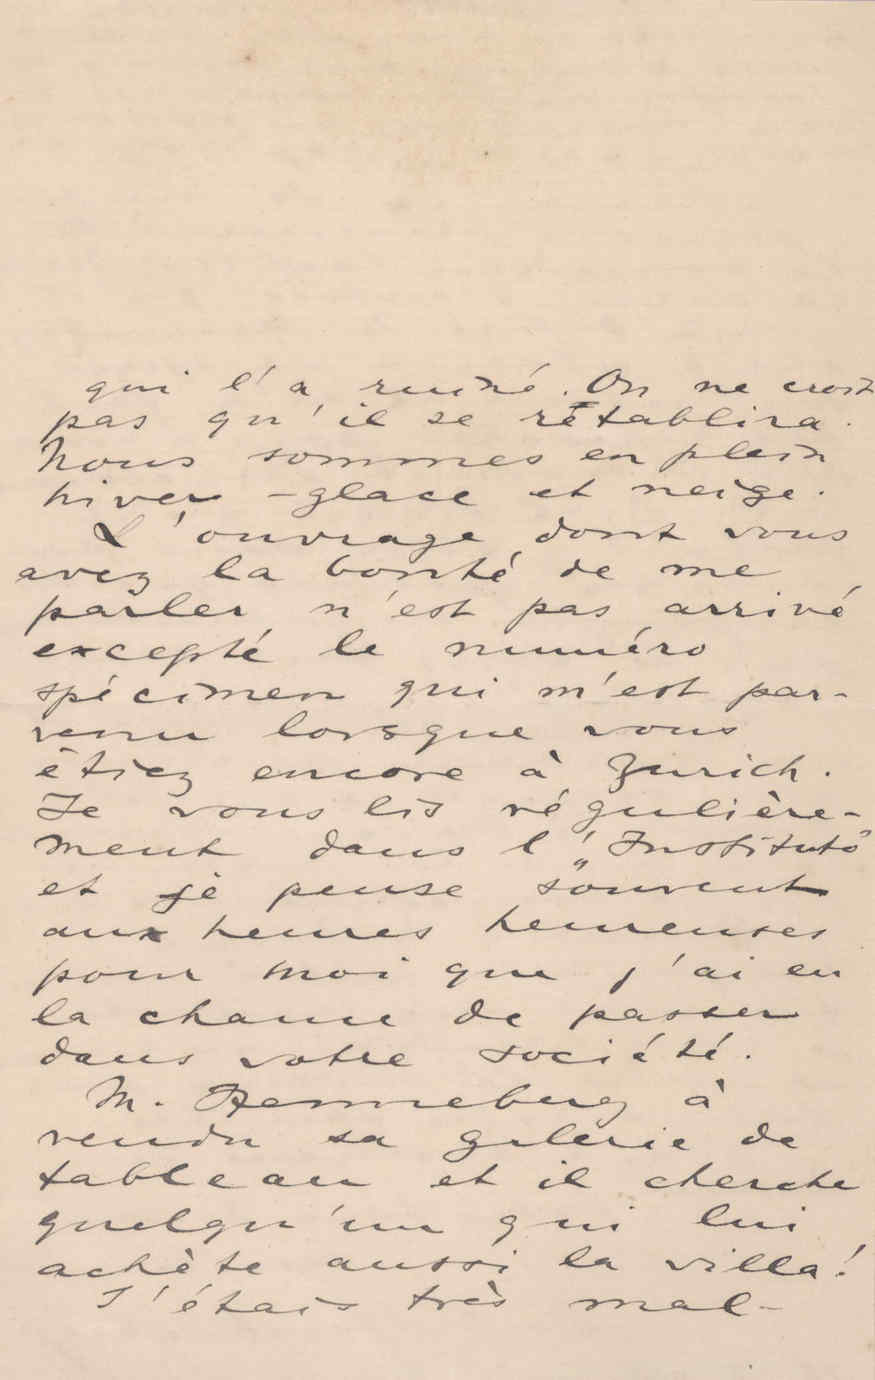 qui l'a ruiné. On ne croit
pas qu'il se rétablira.
Nous sommes en plein
hiver - glace et neige.
L'ouvrage dont vous
avez la bonté de me
parler n'est pas arrivé
excepté le numéro
spécimen qui m'est par-
venu lorsque vous
étiez encore à Zurich.
Je vous lis régulière-
ment dans l'„Instituto"
et je pense souvent
aux heures heureuses
pour moi que j'ai eu
la chance de passer
dans votre société.
M. Henneberg à
vendu sa galerie de
tableau et il cherche
quelqu'un qui lui
achète aussi la villa!
J'étais très mal-